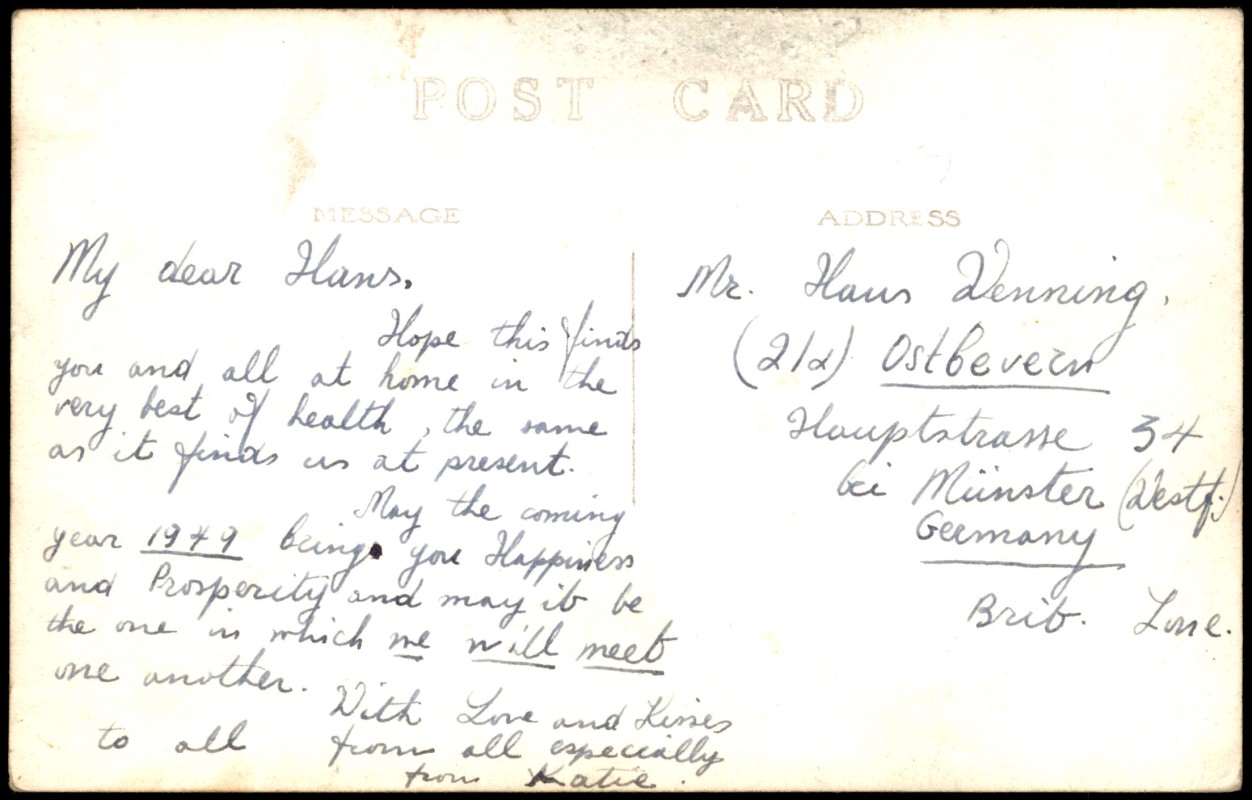 POST CARD
MESSAGE
My dear Hans,
Hope this finds
you and all at home in the
very best of health, the same
as it finds us at present.
May the coming
year 1949 brings you Happiness
and Prosperity and may it be
the one in which we will meet
one another.
With Love and Kisses
to all from all especially
from Katie.
ADDRESS
Mr. Hans Wenning,
(21a) Ostbevern
Hauptstrasse 34
bei Münster (Westf.)
Germany
Brit. Zone.